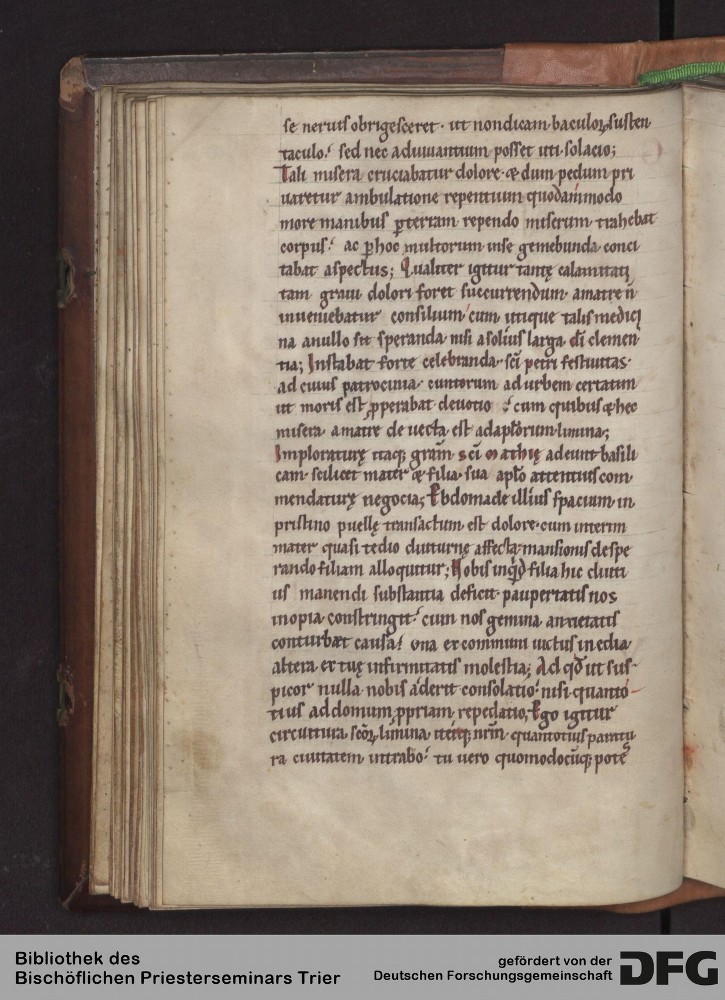 se neruis obrigesceret · ut non dicam baculoꝝ susten
taculo · sed nec adiuuantium posset uti solacio;
Tali misera cruciabatur dolore · & dum pedum pri
uaretur ambulatione repentium quodammodo
more manibus ꝑ terram rependo miserum trahebat
corpus · ac ꝑ hoc multorum in se gemebunda conci
tabat aspectus; Qualiter igitur tantę calamitati
tam graui dolori foret succurrendum a matre n̄
inueniebatur consilium cum utique talis medici
na a nullo sit speranda nisi a solius larga dī clemen
tia; Instabat forte celebranda sc̄i petri festiuitas ·
ad cuius patrocinia cunctorum ad urbem certatim
ut moris est ꝓperabat deuotio · cum quibus & hec
misera a matre deuecta est ad apl̄orum limina;
Imploraturę itaq; gram̄ sc̄i mathię adeunt basili
cam · scilicet mater & filia · sua apl̄o attentius com
mendaturę negocia; Ebdomade illius spacium in
pristino puellę transactum est dolore · cum interim
mater quasi tedio diuturnę affecta mansionis despe
rando filiam alloquitur; Nobis inquid filia hic diuti
us manendi substantia deficit · paupertatis nos
inopia constringit · cum nos gemina anxietatis
conturbæt causa · una ex communi uictus inedia
altera ex tuę infirmitatis molestia; Ad qd̄ ut sus
picor nulla nobis aderit consolatio · nisi quanto
tius ad domum ꝓpriam repedatio; Ego igitur
circuitura sc̄oꝝ limina iterq; nr̄m quantotius paritu
ra ciuitatem intrabo · tu uero quomodocūq; pote
Bibliothek des
Bischöflichen Priesterseminars Trier
gefördert von der
Deutschen Forschungsgemeinschaft
DFG